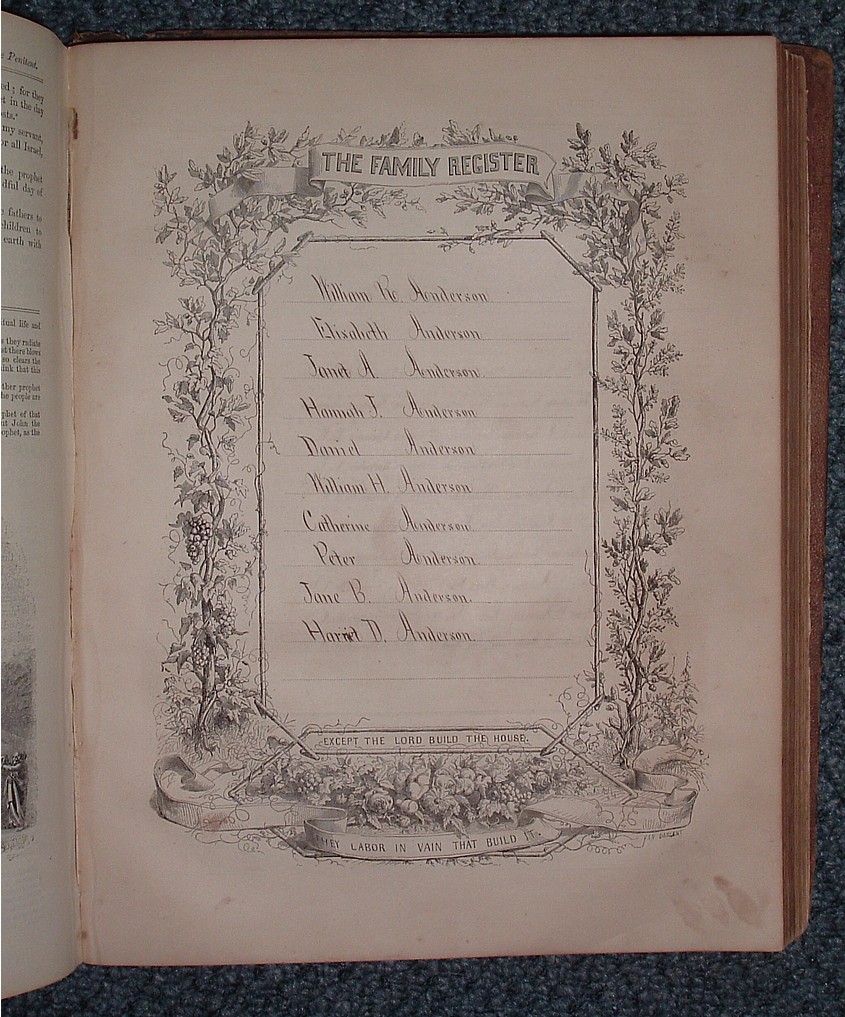 Penitent.
ed; for they
et in the day
my servant,
or all Israel,
the prophet
dful day of
fathers to
children to
earth with
tual life and
they radiate
so clears the
ink that this
ther prophet
he people are
phet of that
nt John the
rophet, as the
THE FAMILY REGISTER
William R. Anderson
Elisabeth Anderson
Janet A. Anderson.
Hannah J. Anderson
Daniel Anderson
William H. Anderson
Catherine Anderson
Peter Anderson
Jane B. Anderson.
Harriet D. Anderson
EXCEPT THE LORD BUILD THE HOUSE.
THEY LABOR IN VAIN THAT BUILD IT.